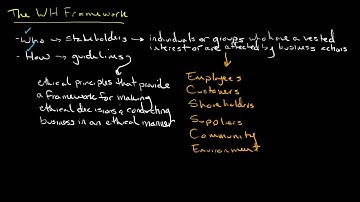 The WH Framework
- Who → stakeholders → individuals or groups who have a vested
interest or are affected by business actions
- How → guidelines
ethical principles that provide
a framework for making
ethical decisions & conducting
business in an ethical manner
Employees
Customers
Shareholders
Suppliers
Community
Environment